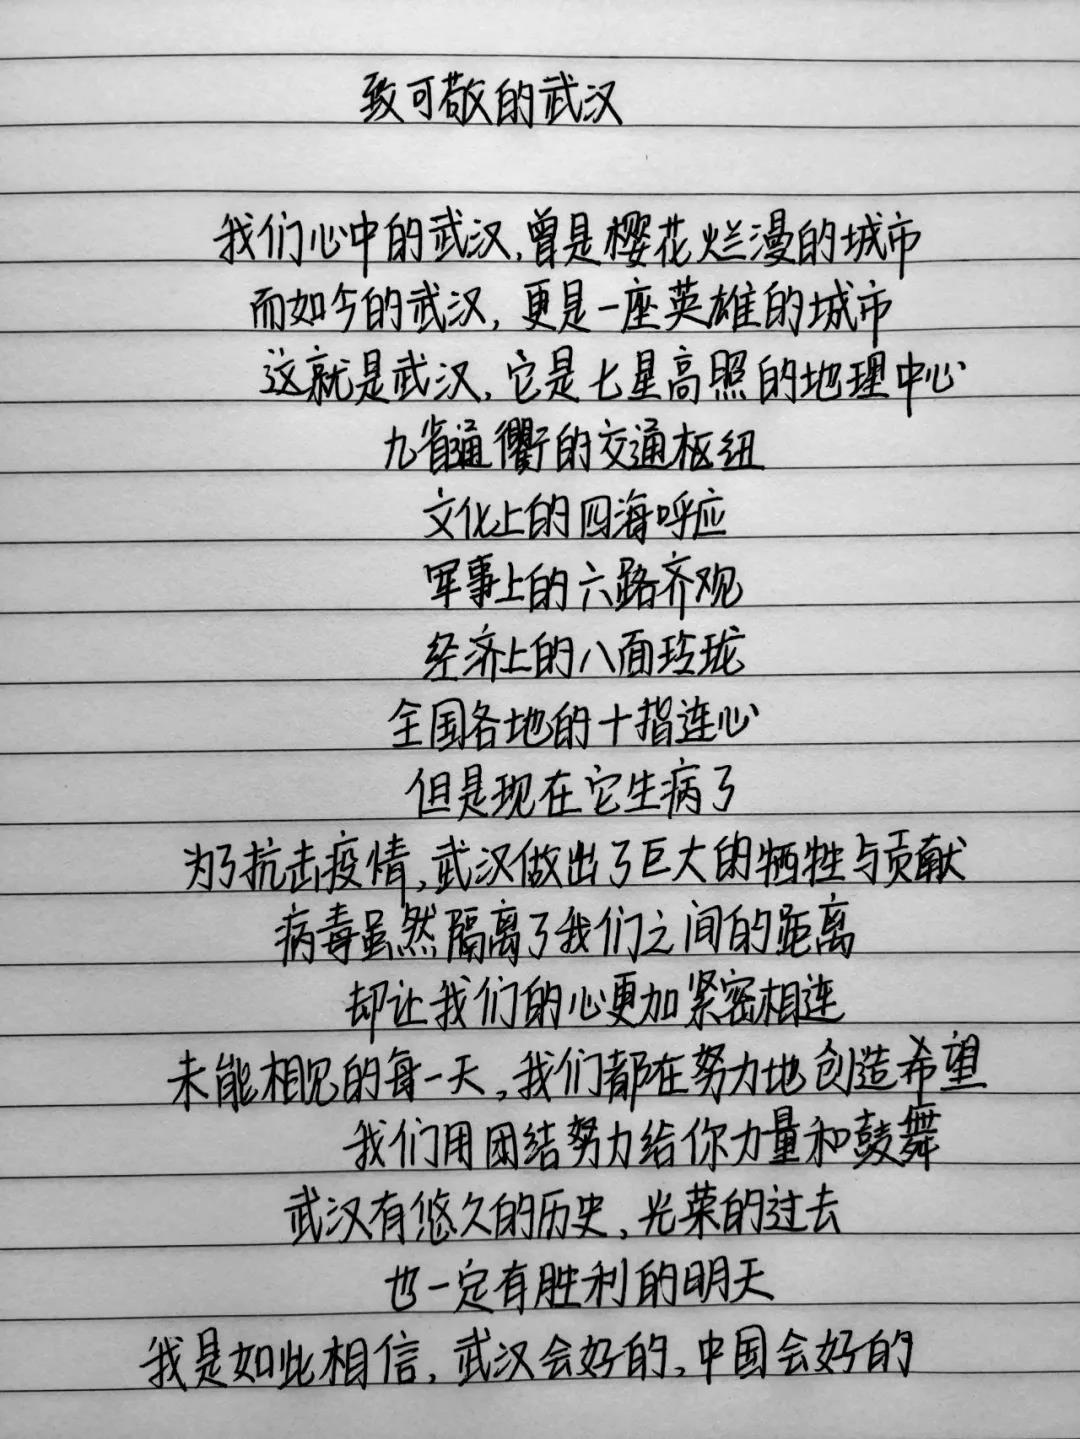 致可敬的武汉
我们心中的武汉,曾是樱花烂漫的城市
而如今的武汉,更是一座英雄的城市
这就是武汉,它是七星高照的地理中心
九省通衢的交通枢纽
文化上的四海呼应
军事上的六路齐观
经济上的八面玲珑
全国各地的十指连心
但是现在它生病了
为了抗击疫情,武汉做出了巨大的牺牲与贡献
病毒虽然隔离了我们之间的距离
却让我们的心更加紧密相连
未能相见的每一天,我们都在努力地创造希望
我们用团结努力给你力量和鼓舞
武汉有悠久的历史,光荣的过去
也一定有胜利的明天
我是如此相信,武汉会好的,中国会好的